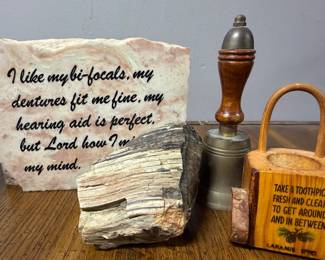 I like my bi-focals, my
dentures fit me fine, my
hearing aid is perfect,
but Lord how I m
my mind.
TAKE A TOOTHPIC
FRESH AND CLEAN
TO GET AROUND
AND IN BETWEEN
LARAMIE WYO